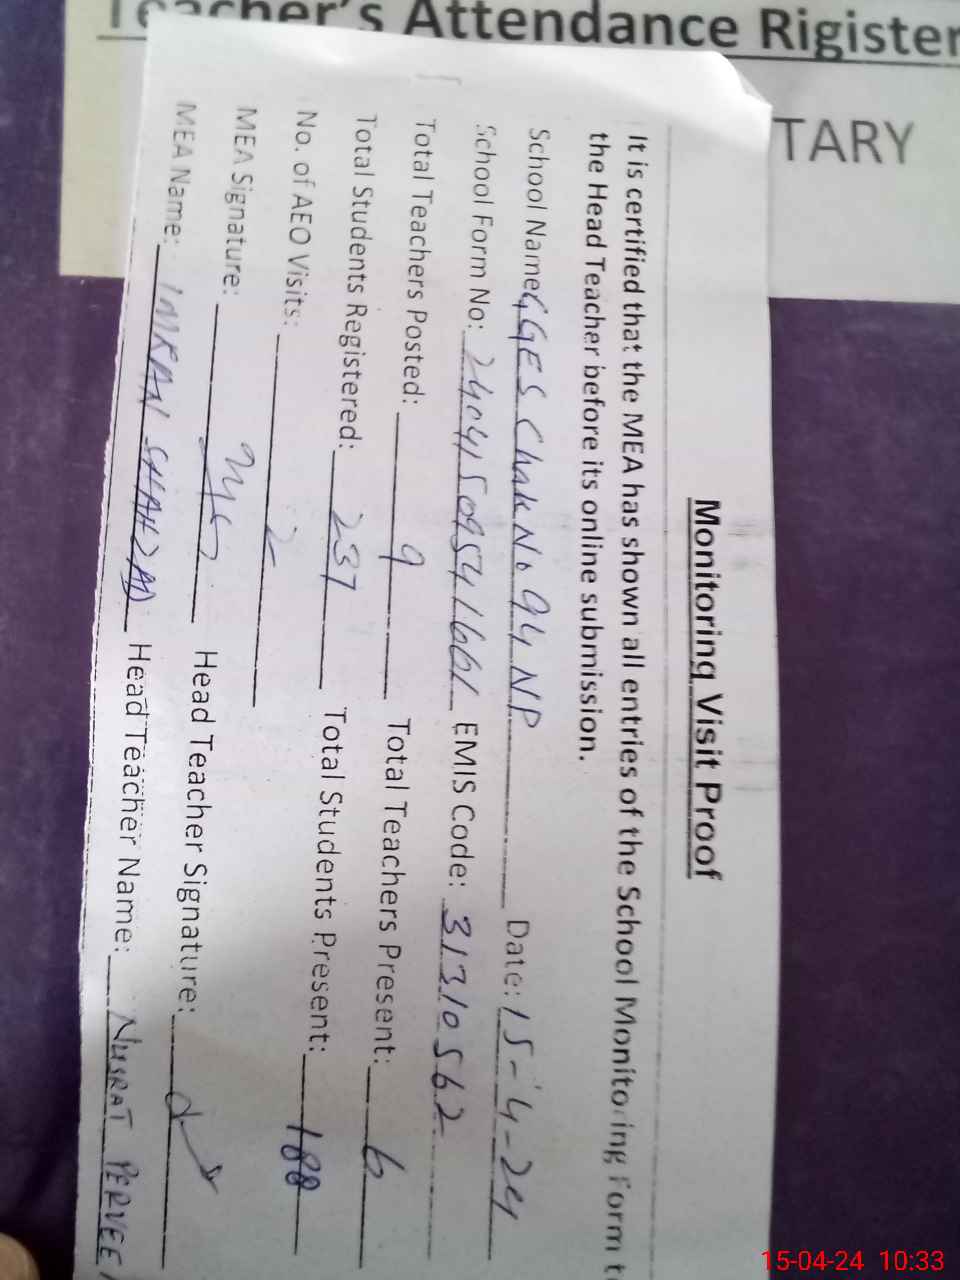 Teacher's Attendance Rigister
TARY
Monitoring Visit Proof
It is certified that the MEA has shown all entries of the School Monitoring Form to
the Head Teacher before its online submission.
School Name GGES Chak No 94 NP Date: 15-4-24
School Form No: 24041509541661 EMIS Code: 31310562
Total Teachers Posted: 9 Total Teachers Present: 6
Total Students Registered: 237 Total Students Present: 188
No. of AEO Visits: 2
MEA Signature: Head Teacher Signature:
MEA Name: IMRAN SHAHZAD Head Teacher Name: NUSRAT PERVEE
15-04-24 10:33